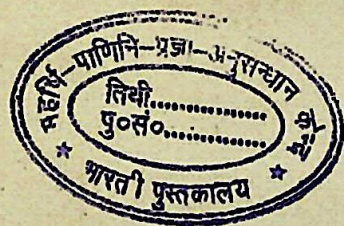 महर्षि-पाणिनि-प्रज्ञा-अनुसन्धान केन्द्र
तिथी...............
पु०सं०...............
* भारती पुस्तकालय *